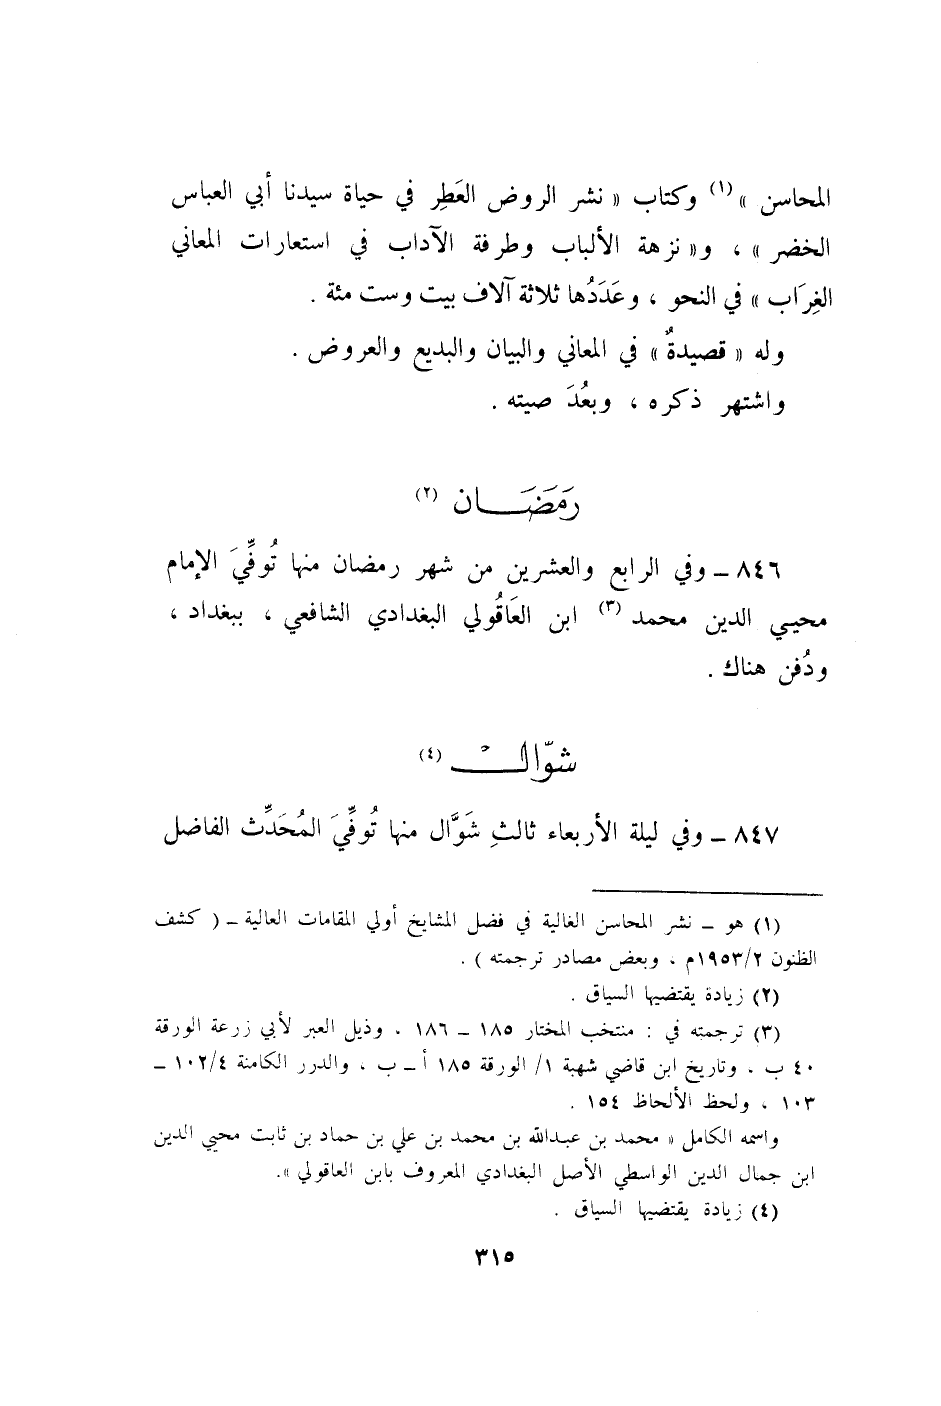 المحاسن »(١) وكتاب « نشر الروض العَطِر في حياة سيدنا أبي العباس
الخضر » ، و« نزهة الألباب وطرفة الآداب في استعارات المعاني
الغِرَاب » في النحو ، وعَدَدُها ثلاثة آلاف بيت وست مئة .
وله « قصيدةٌ » في المعاني والبيان والبديع والعروض .
واشتهر ذكره ، وبعُدَ صيته .
رَمَضَـــان (٢)
٨٤٦ ــ وفي الرابع والعشرين من شهر رمضان منها تُوفِّيَ الإمام
محيـي الدين محمد (٣) ابن العَاقُولي البغدادي الشافعي ، ببغداد ،
ودُفن هناك .
شوّال (٤)
٨٤٧ ــ وفي ليلة الأربعاء ثالثِ شَوَّال منها تُوفِّيَ المُحَدِّث الفاضل
(١) هو ــ نشر المحاسن الغالية في فضل المشايخ أولي المقامات العالية ــ ( كشف
الظنون ١٩٥٣/٢م ، وبعض مصادر ترجمته ) .
(٢) زيادة يقتضيها السياق .
(٣) ترجمته في : منتخب المختار ١٨٥ ــ ١٨٦ ، وذيل العبر لأبي زرعة الورقة
٤٠ ب ، وتاريخ ابن قاضي شهبة ١/ الورقة ١٨٥ أ ــ ب ، والدرر الكامنة ١٠٢/٤ ــ
١٠٣ ، ولحظ الألحاظ ١٥٤ .
واسمه الكامل « محمد بن عبدالله بن محمد بن علي بن حماد بن ثابت محيي الدين
ابن جمال الدين الواسطي الأصل البغدادي المعروف بابن العاقولي ».
(٤) زيادة يقتضيها السياق .
٣١٥